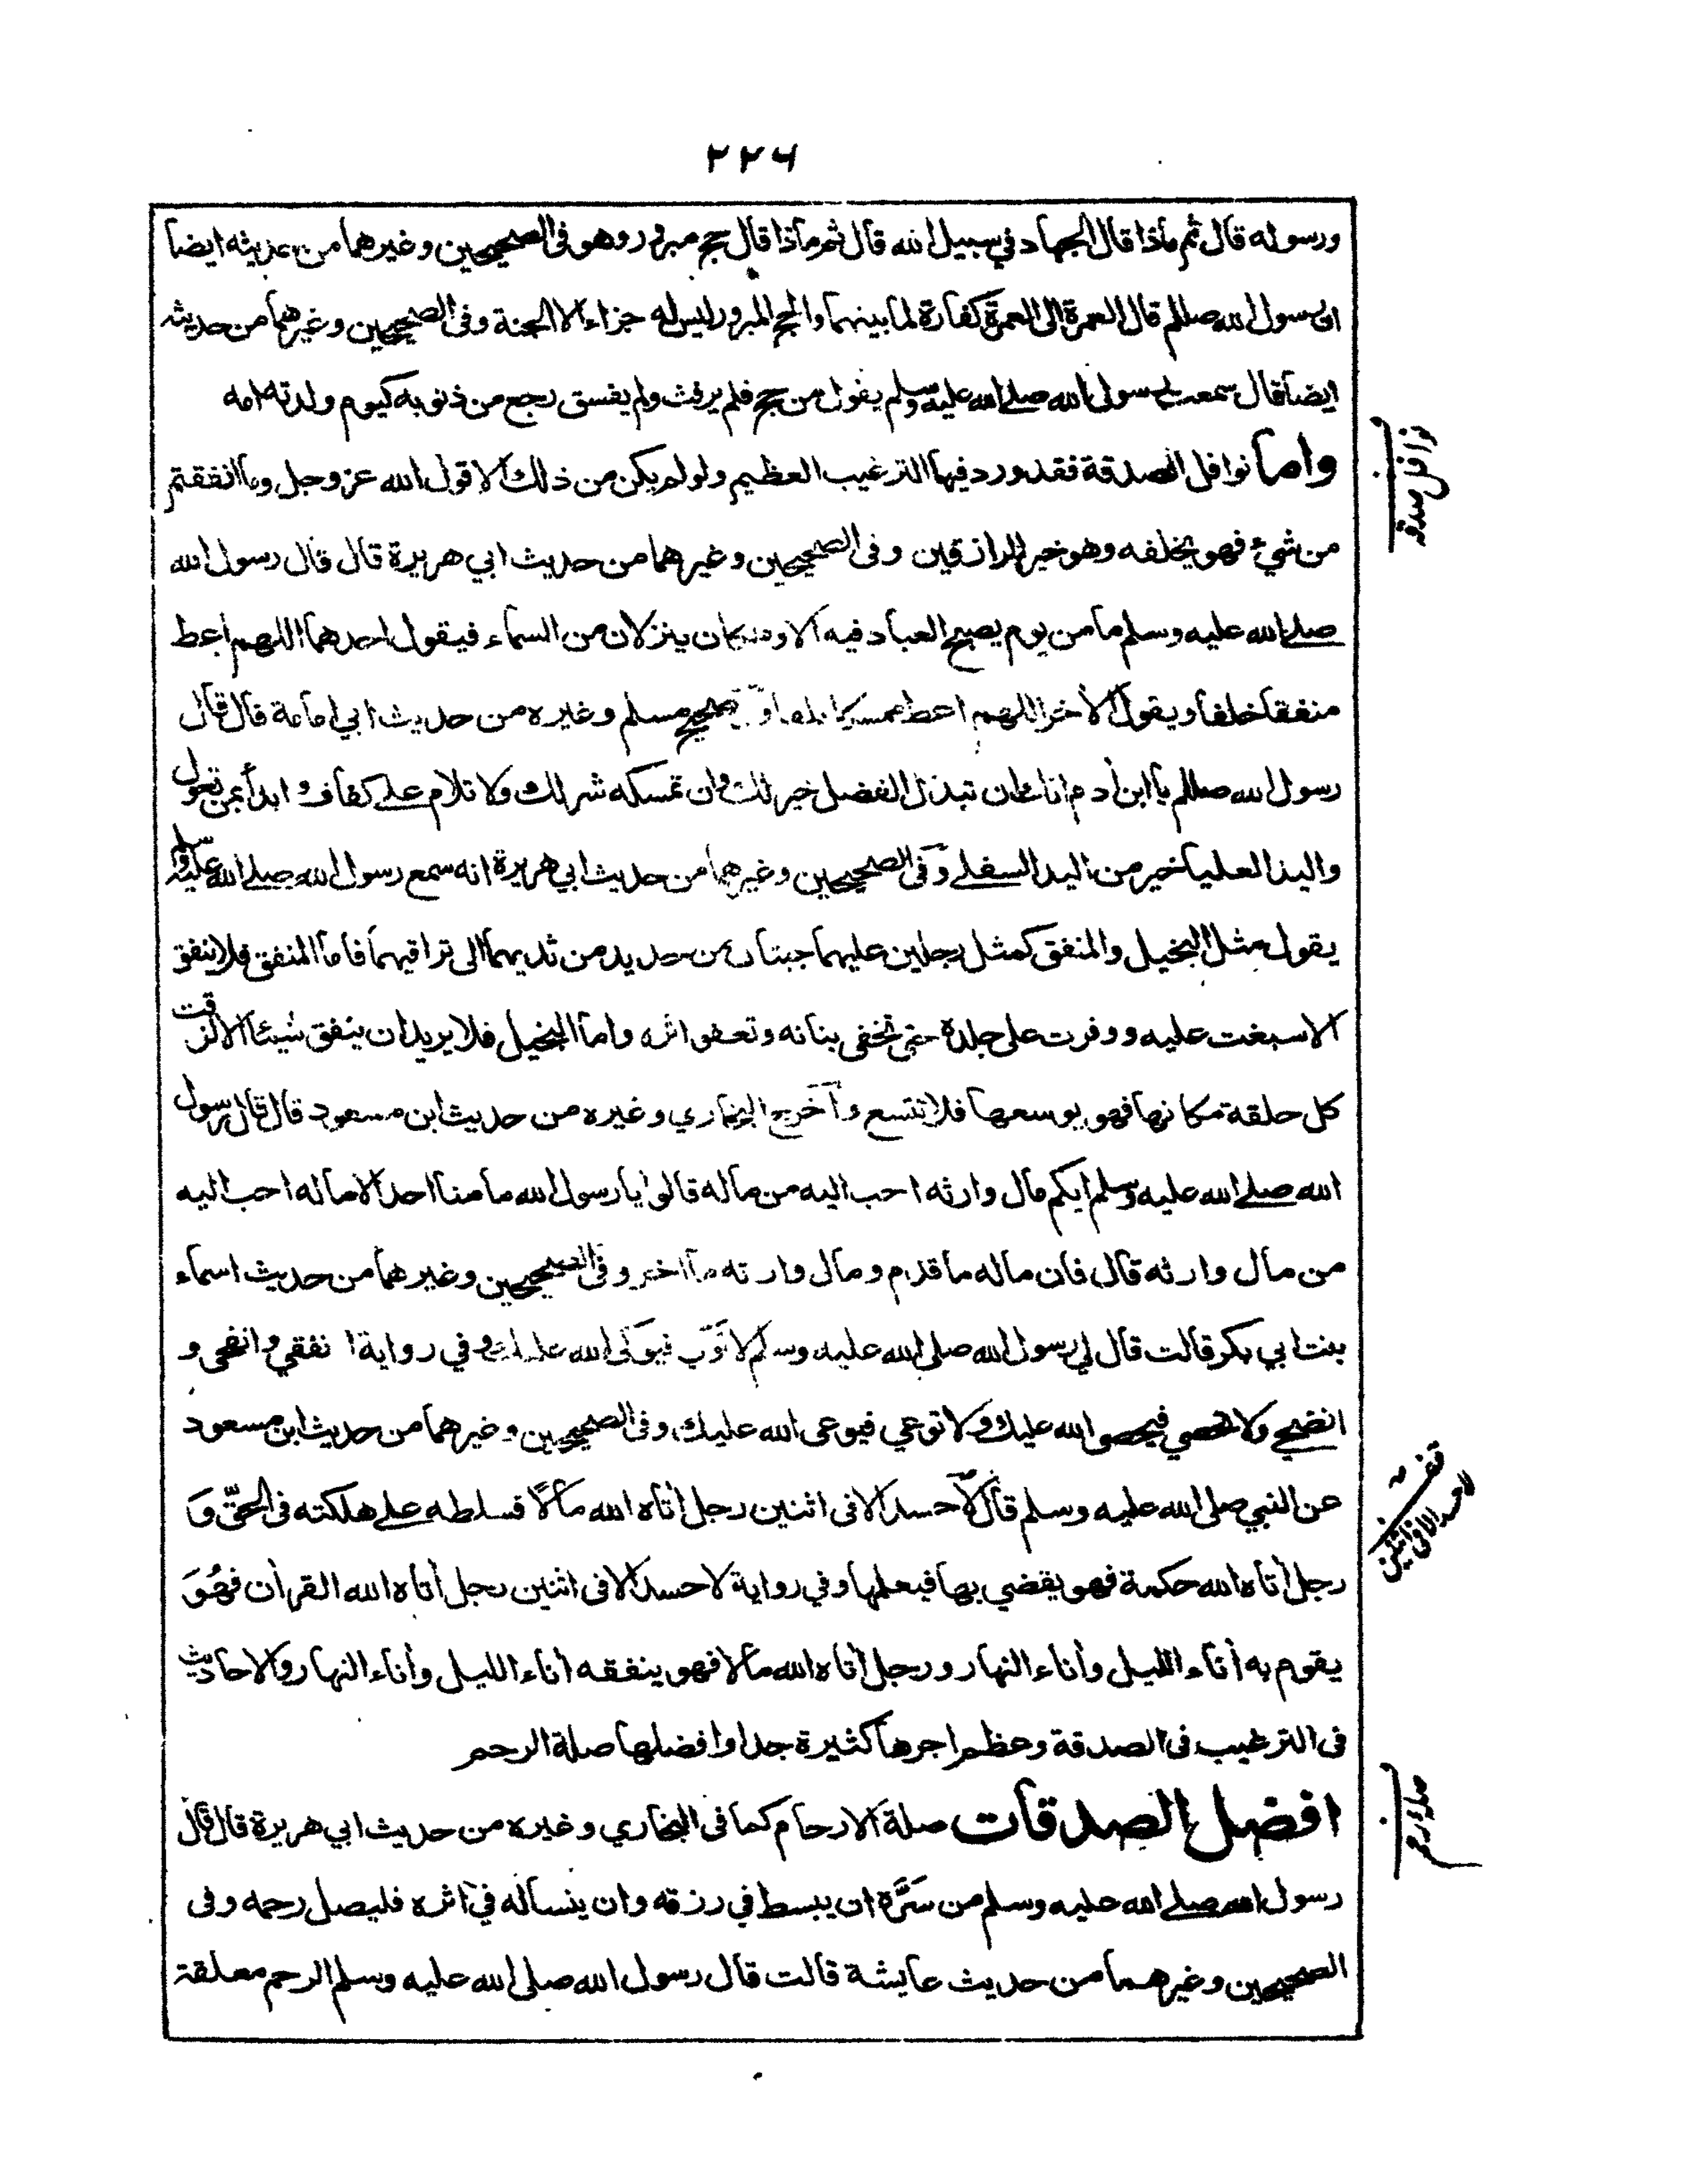 ٢٢٦
ورسوله قال ثم ماذا قال الجهاد في سبيل الله قال ثم ماذا قال حج مبرور وهو فى الصحيحين وغيرهما من حديثه ايضا
ان رسول الله صللم قال العمرة الى العمرة كفارة لما بينهما والحج المبرور ليس له جزاء الا الجنة وفى الصحيحين وغيرهما من حديثه
ايضا قال سمعت رسول الله صلے الله عليه وسلم يقول من حج فلم يرفث ولم يفسق رجع من ذنوبه كيوم ولدته امه
واما نوافل الصدقة فقد ورد فيها الترغيب العظيم ولو لم يكن من ذلك الا قول الله عز وجل وما انفقتم
من شيء فهو يخلفه وهو خير الرازقين وفى الصحيحين وغيرهما من حديث ابي هريرة قال قال رسول الله
صلے الله عليه وسلم ما من يوم يصبح العباد فيه الا وملكان ينزلان من السماء فيقول احدهما اللهم اعط
منفقا خلفا ويقول الأخر اللهم اعط ممسكا تلفا وفى صحيح مسلم وغيره من حديث ابي امامة قال قال
رسول الله صللم يا ابن أدم انك ان تبذل الفضل خير لك وان تمسكه شر لك ولا تلام علے كفاف وابدأ بمن تعول
واليد العليا خير من اليد السفلے وفى الصحيحين وغيرهما من حديث ابي هريرة انه سمع رسول الله صلے الله عليه وسلم
يقول مثل البخيل والمنفق كمثل رجلين عليهما جبتان من حديد من ثديهما الى تراقيهما فاما المنفق فلا ينفق
الا سبغت عليه ووفرت على جلده حتى تخفى بنانه وتعفو اثره واما البخيل فلا يريد ان ينفق شيئا الا لزقت
كل حلقة مكانها فهو يوسعها فلا تتسع وأخرج البخاري وغيره من حديث ابن مسعود قال قال رسول
الله صلے الله عليه وسلم ايكم مال وارثه احب اليه من ماله قالوا يا رسول الله ما منا احد الا ماله احب اليه
من مال وارثه قال فان ماله ما قدم ومال وارثه ما اخر وفى الصحيحين وغيرهما من حديث اسماء
بنت ابي بكر قالت قال لي رسول الله صلى الله عليه وسلم لا توكي فيوكى الله عليك وفي رواية انفقي وانفحي و
انضحي ولا تحصي فيحصى الله عليك ولا توعي فيوعى الله عليك وفى الصحيحين وغيرهما من حديث ابن مسعود
عن النبي صلى الله عليه وسلم قال لا حسد الا فى اثنين رجل أتاه الله مالا فسلطه علے هلكته فى الحق و
رجل أتاه الله حكمة فهو يقضي بها فيعلمها وفي رواية لا حسد الا فى اثنين رجل أتاه الله القرأن فهو
يقوم به أناء الليل وأناء النهار ورجل أتاه الله مالا فهو ينفقه أناء الليل وأناء النهار والاحاديث
فى الترغيب فى الصدقة وعظم اجرها كثيرة جدا وافضلها صلة الرحم
افضل الصدقات صلة الارحام كما فى البخاري وغيره من حديث ابي هريرة قال قال
رسول الله صلے الله عليه وسلم من سَرَّه ان يبسط في رزقه وان ينسأ له في اثره فليصل رحمه وفى
الصحيحين وغيرهما من حديث عايشة قالت قال رسول الله صلى الله عليه وسلم الرحم معلقة
نوافل صدقه
لا حسد الا فى اثنين
صله رحم